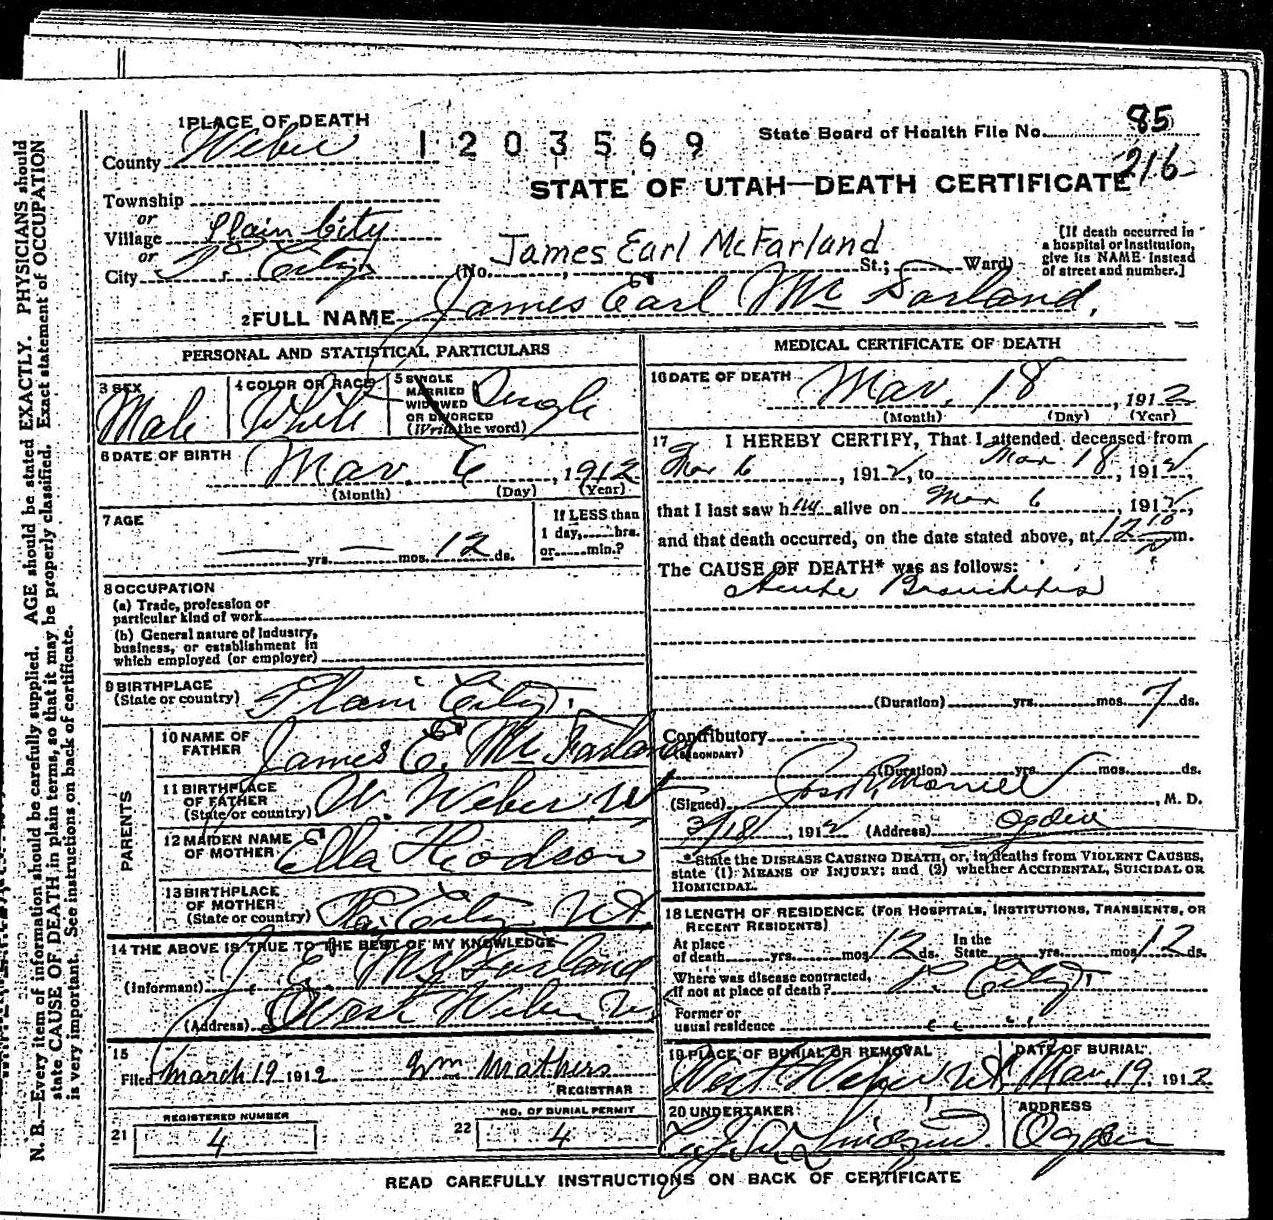 1 PLACE OF DEATH
County Weber
1203569
State Board of Health File No. 85
216
STATE OF UTAH—DEATH CERTIFICATE
Township
or
Village Plain City
or
City P. City
(No. James Earl McFarland St.; Ward)
[If death occurred in a hospital or institution, give its NAME instead of street and number.]
2 FULL NAME James Earl Mc Farland,
PERSONAL AND STATISTICAL PARTICULARS
3 SEX Male
4 COLOR OR RACE White
5 SINGLE MARRIED WIDOWED OR DIVORCED (Write the word) Single
6 DATE OF BIRTH Mar. 6, 1912
(Month) (Day) (Year)
7 AGE
— yrs. — mos. 12 ds.
If LESS than 1 day, hrs. or min.?
8 OCCUPATION
(a) Trade, profession or particular kind of work
(b) General nature of industry, business, or establishment in which employed (or employer)
9 BIRTHPLACE (State or country) Plain City.
PARENTS
10 NAME OF FATHER James E. Mc Farland
11 BIRTHPLACE OF FATHER (State or country) W. Weber, Ut
12 MAIDEN NAME OF MOTHER Ella Hodson
13 BIRTHPLACE OF MOTHER (State or country) City Ut
14 THE ABOVE IS TRUE TO THE BEST OF MY KNOWLEDGE
(Informant) J. E. McFarland
(Address) West Weber, Ut
15
Filed March 19 1912 Wm Mathers
REGISTRAR
REGISTERED NUMBER
21 4
NO. OF BURIAL PERMIT
22 4
MEDICAL CERTIFICATE OF DEATH
16 DATE OF DEATH Mar. 18, 1912
(Month) (Day) (Year)
17 I HEREBY CERTIFY, That I attended deceased from
Mar 6, 1912, to Mar 18, 1912,
that I last saw him alive on Mar 6, 1912,
and that death occurred, on the date stated above, at 12 10 P m.
The CAUSE OF DEATH* was as follows:
Acute Bronchitis
(Duration) yrs. mos. 7 ds.
Contributory
(SECONDARY)
(Duration) yrs. mos. ds.
(Signed) Morrell, M. D.
3/18, 1912 (Address) Ogden
*State the DISEASE CAUSING DEATH, or, in deaths from VIOLENT CAUSES, state (1) MEANS OF INJURY; and (2) whether ACCIDENTAL, SUICIDAL OR HOMICIDAL.
18 LENGTH OF RESIDENCE (FOR HOSPITALS, INSTITUTIONS, TRANSIENTS, OR RECENT RESIDENTS)
At place of death yrs. mos. 12 ds. In the State yrs. mos. 12 ds.
Where was disease contracted, if not at place of death? P. City
Former or usual residence " "
19 PLACE OF BURIAL OR REMOVAL West Weber Ut
DATE OF BURIAL Mar. 19, 1912
20 UNDERTAKER
ADDRESS Ogden
READ CAREFULLY INSTRUCTIONS ON BACK OF CERTIFICATE
N. B.—Every item of information should be carefully supplied. AGE should be stated EXACTLY. PHYSICIANS should
state CAUSE OF DEATH in plain terms, so that it may be properly classified. Exact statement of OCCUPATION
is very important. See instructions on back of certificate.